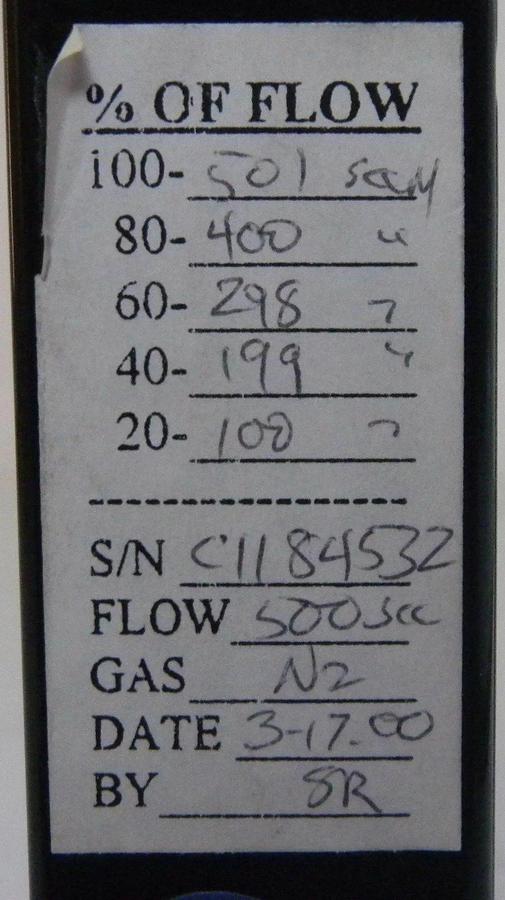 % OF FLOW
100- 501 sccm
80- 400 "
60- 298 "
40- 199 "
20- 100 "
S/N C1184532
FLOW 500scc
GAS N2
DATE 3-17.00
BY SR